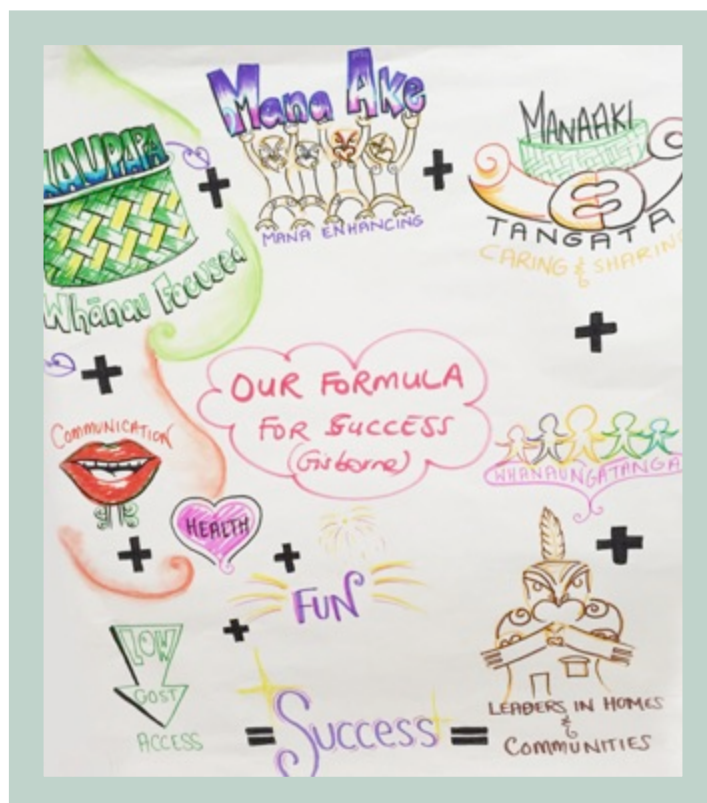 KAUPAPA
Whānau Focused
+
Mana Ake
MANA ENHANCING
+
MANAAKI
TANGATA
CARING & SHARING
+
+
OUR FORMULA
FOR SUCCESS
(Gisborne)
COMMUNICATION
WHANAUNGATANGA
HEALTH
+
+
+
FUN
+
LOW
COST
ACCESS
= Success =
LEADERS IN HOMES
&
COMMUNITIES